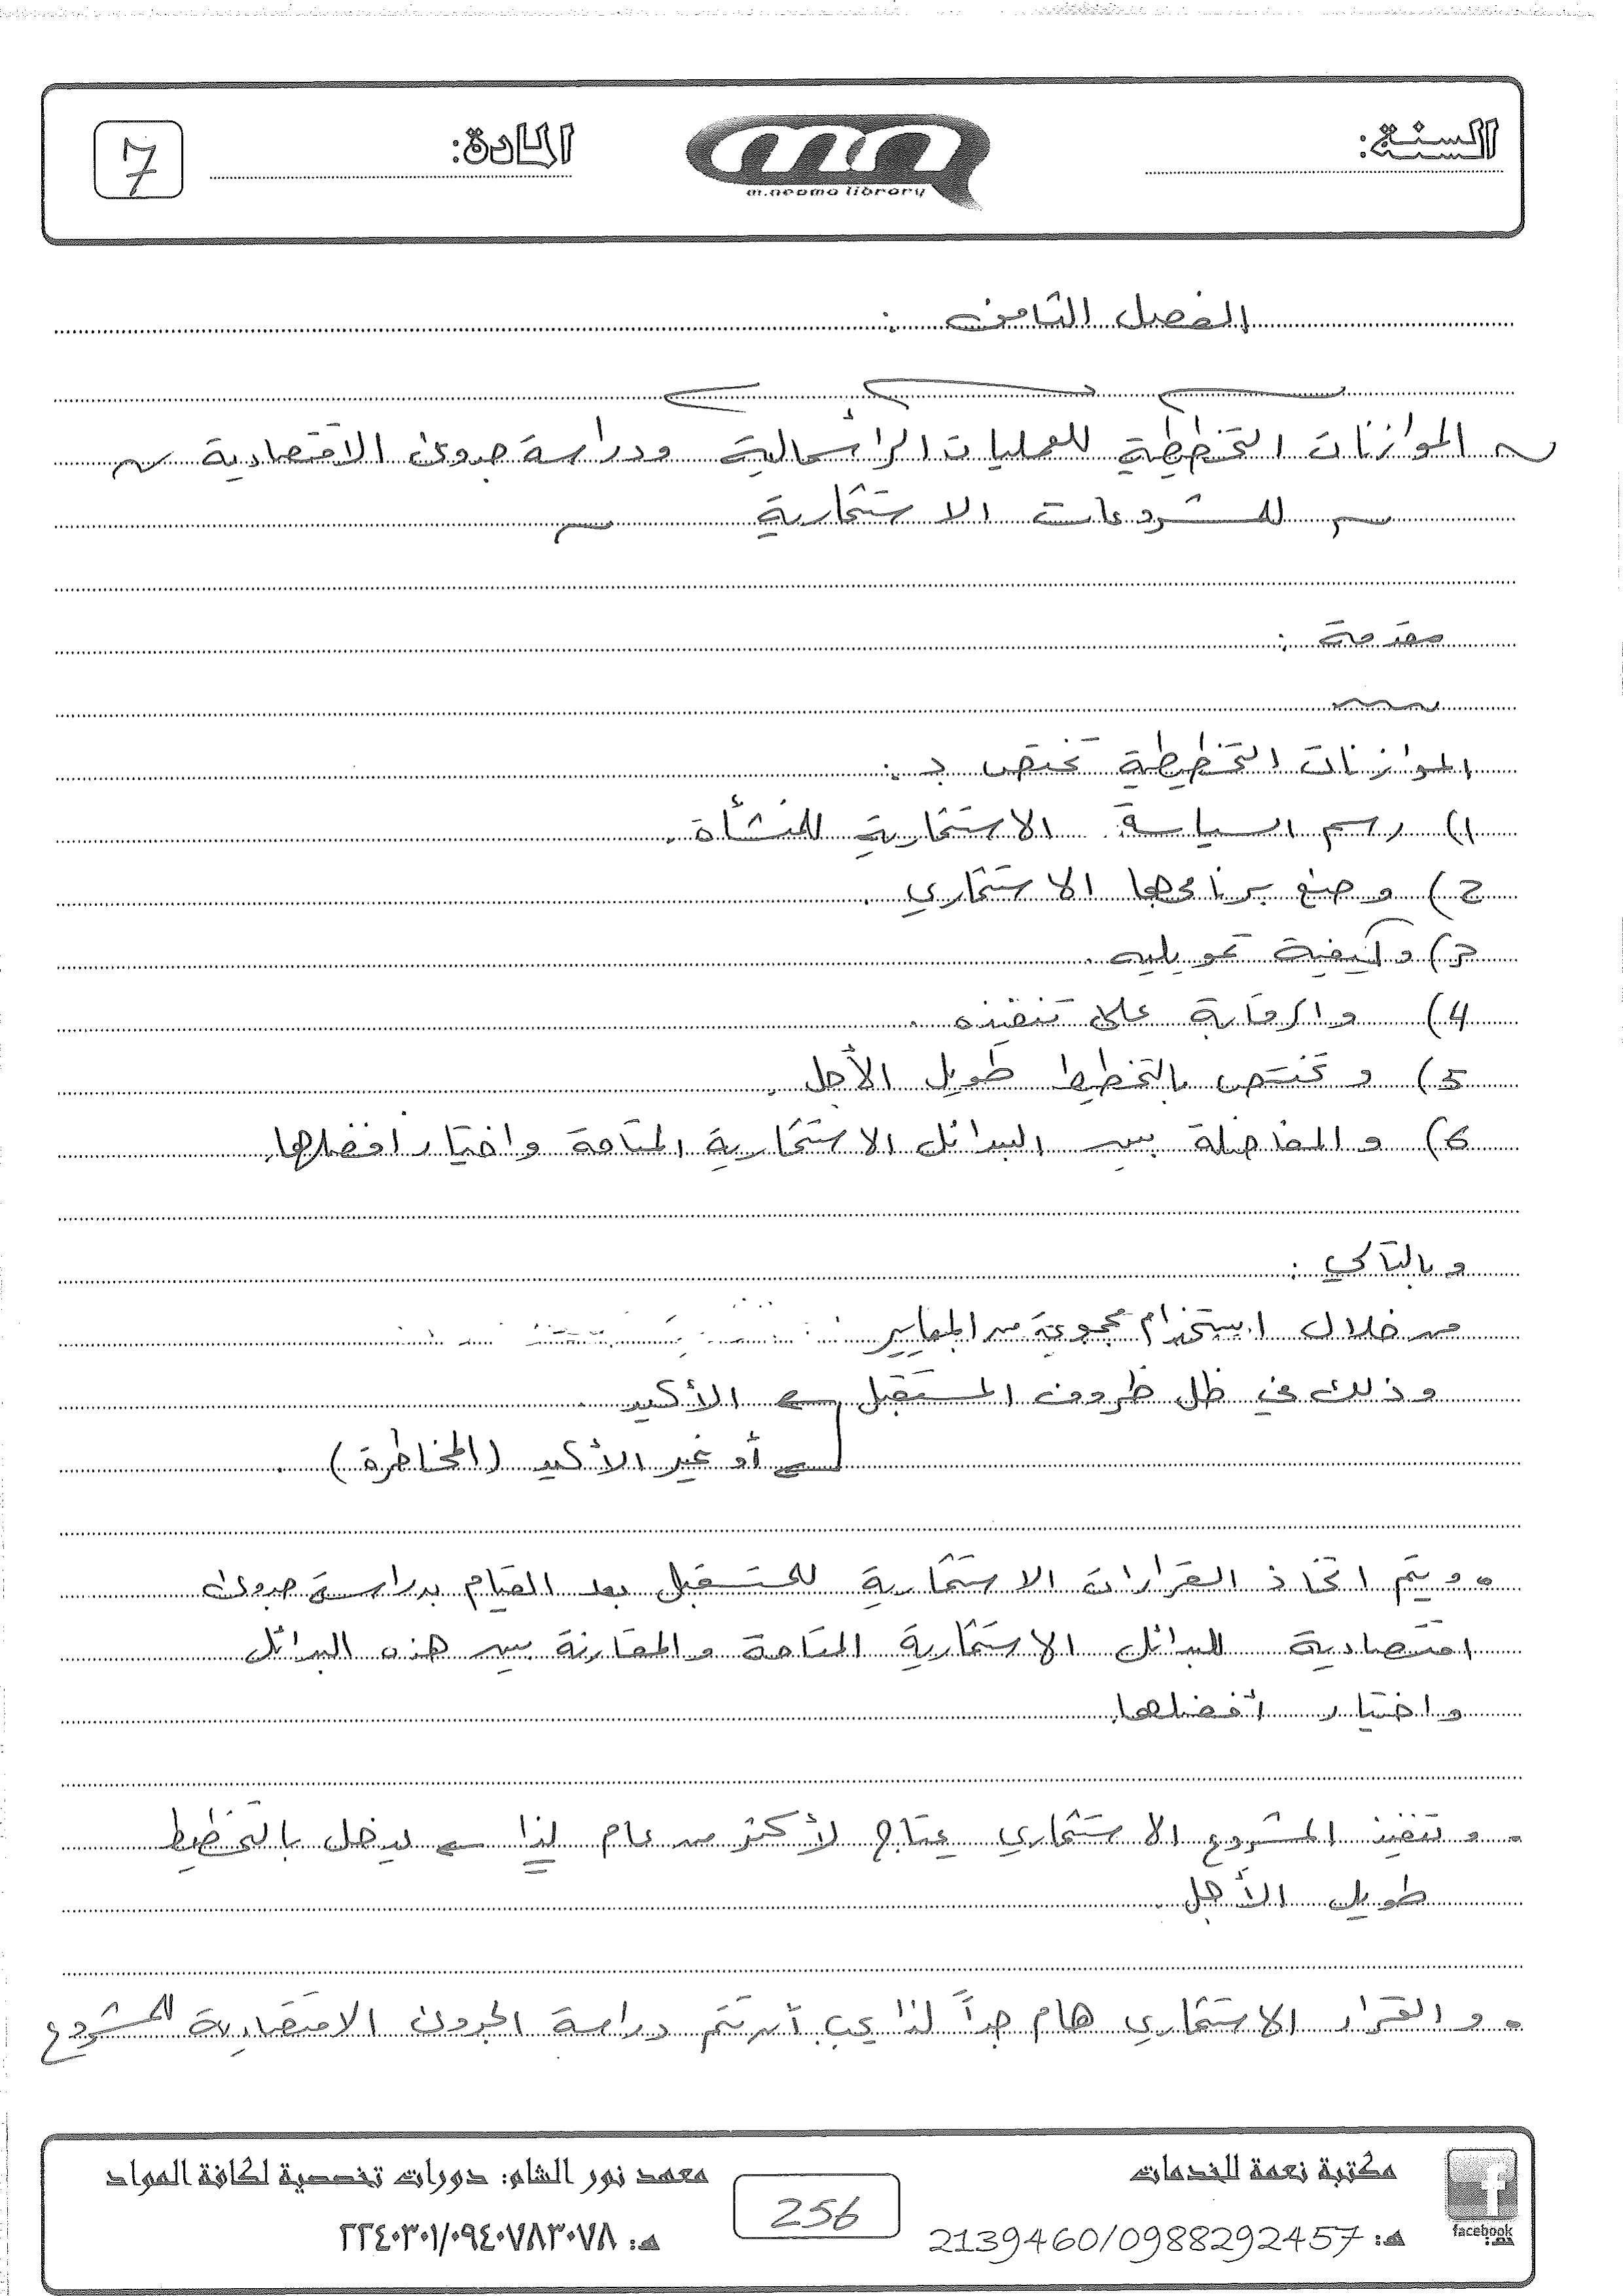 السنة:
m.neama library
المادة:
7
الفصل الثامن :
الموازنات التخطيطية للعمليات الرأسمالية ودراسة جدوى الاقتصادية
للمشروعات الاستثمارية
مقدمة :
الموازنات التخطيطية تختص بـ :
1) رسم السياسة الاستثمارية للمنشأة .
2) وضع برنامجها الاستثماري .
3) وكيفية تمويليه .
4) والرقابة على تنفيذه .
5) وتختص بالتخطيط طويل الأجل .
6) والمفاضلة بين البدائل الاستثمارية المتاحة واختيار افضلها.
وبالتالي :
من خلال استخدام مجموعة من المعايير
وذلك في ظل ظروف المستقبل ← الأكيد .
← أو غير الأكيد (المخاطرة) .
• ويتم اتخاذ القرارات الاستثمارية للمستقبل بعد القيام بدراسة جدوى
اقتصادية للبدائل الاستثمارية المتاحة والمقارنة بين هذه البدائل
واختيار أفضلها.
• وتنفيذ المشروع الاستثماري يحتاج لأكثر من عام لذا ← يدخل بالتخطيط
طويل الأجل .
• والقرار الاستثماري هام جداً لذا يجب أن تتم دراسة الجدوى الاقتصادية للمشروع
مكتبة نعمة للخدمات
هـ: 2139460/0988292457
facebook
256
معهد نور الشام: دورات تخصصية لكافة المواد
هـ: ٢٢٤٠٣٠١/٠٩٤٠٧٨٣٠٧٨